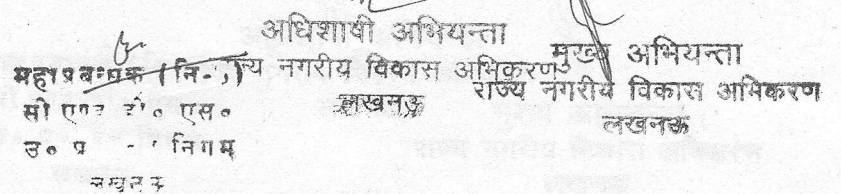 अधिशाषी अभियन्ता
राज्य नगरीय विकास अभिकरण
लखनऊ
मुख्य अभियन्ता
राज्य नगरीय विकास अभिकरण
लखनऊ
महाप्रबन्धक (नि.)
सी एण्ड डी० एस०
उ० प्र० निगम
लखनऊ